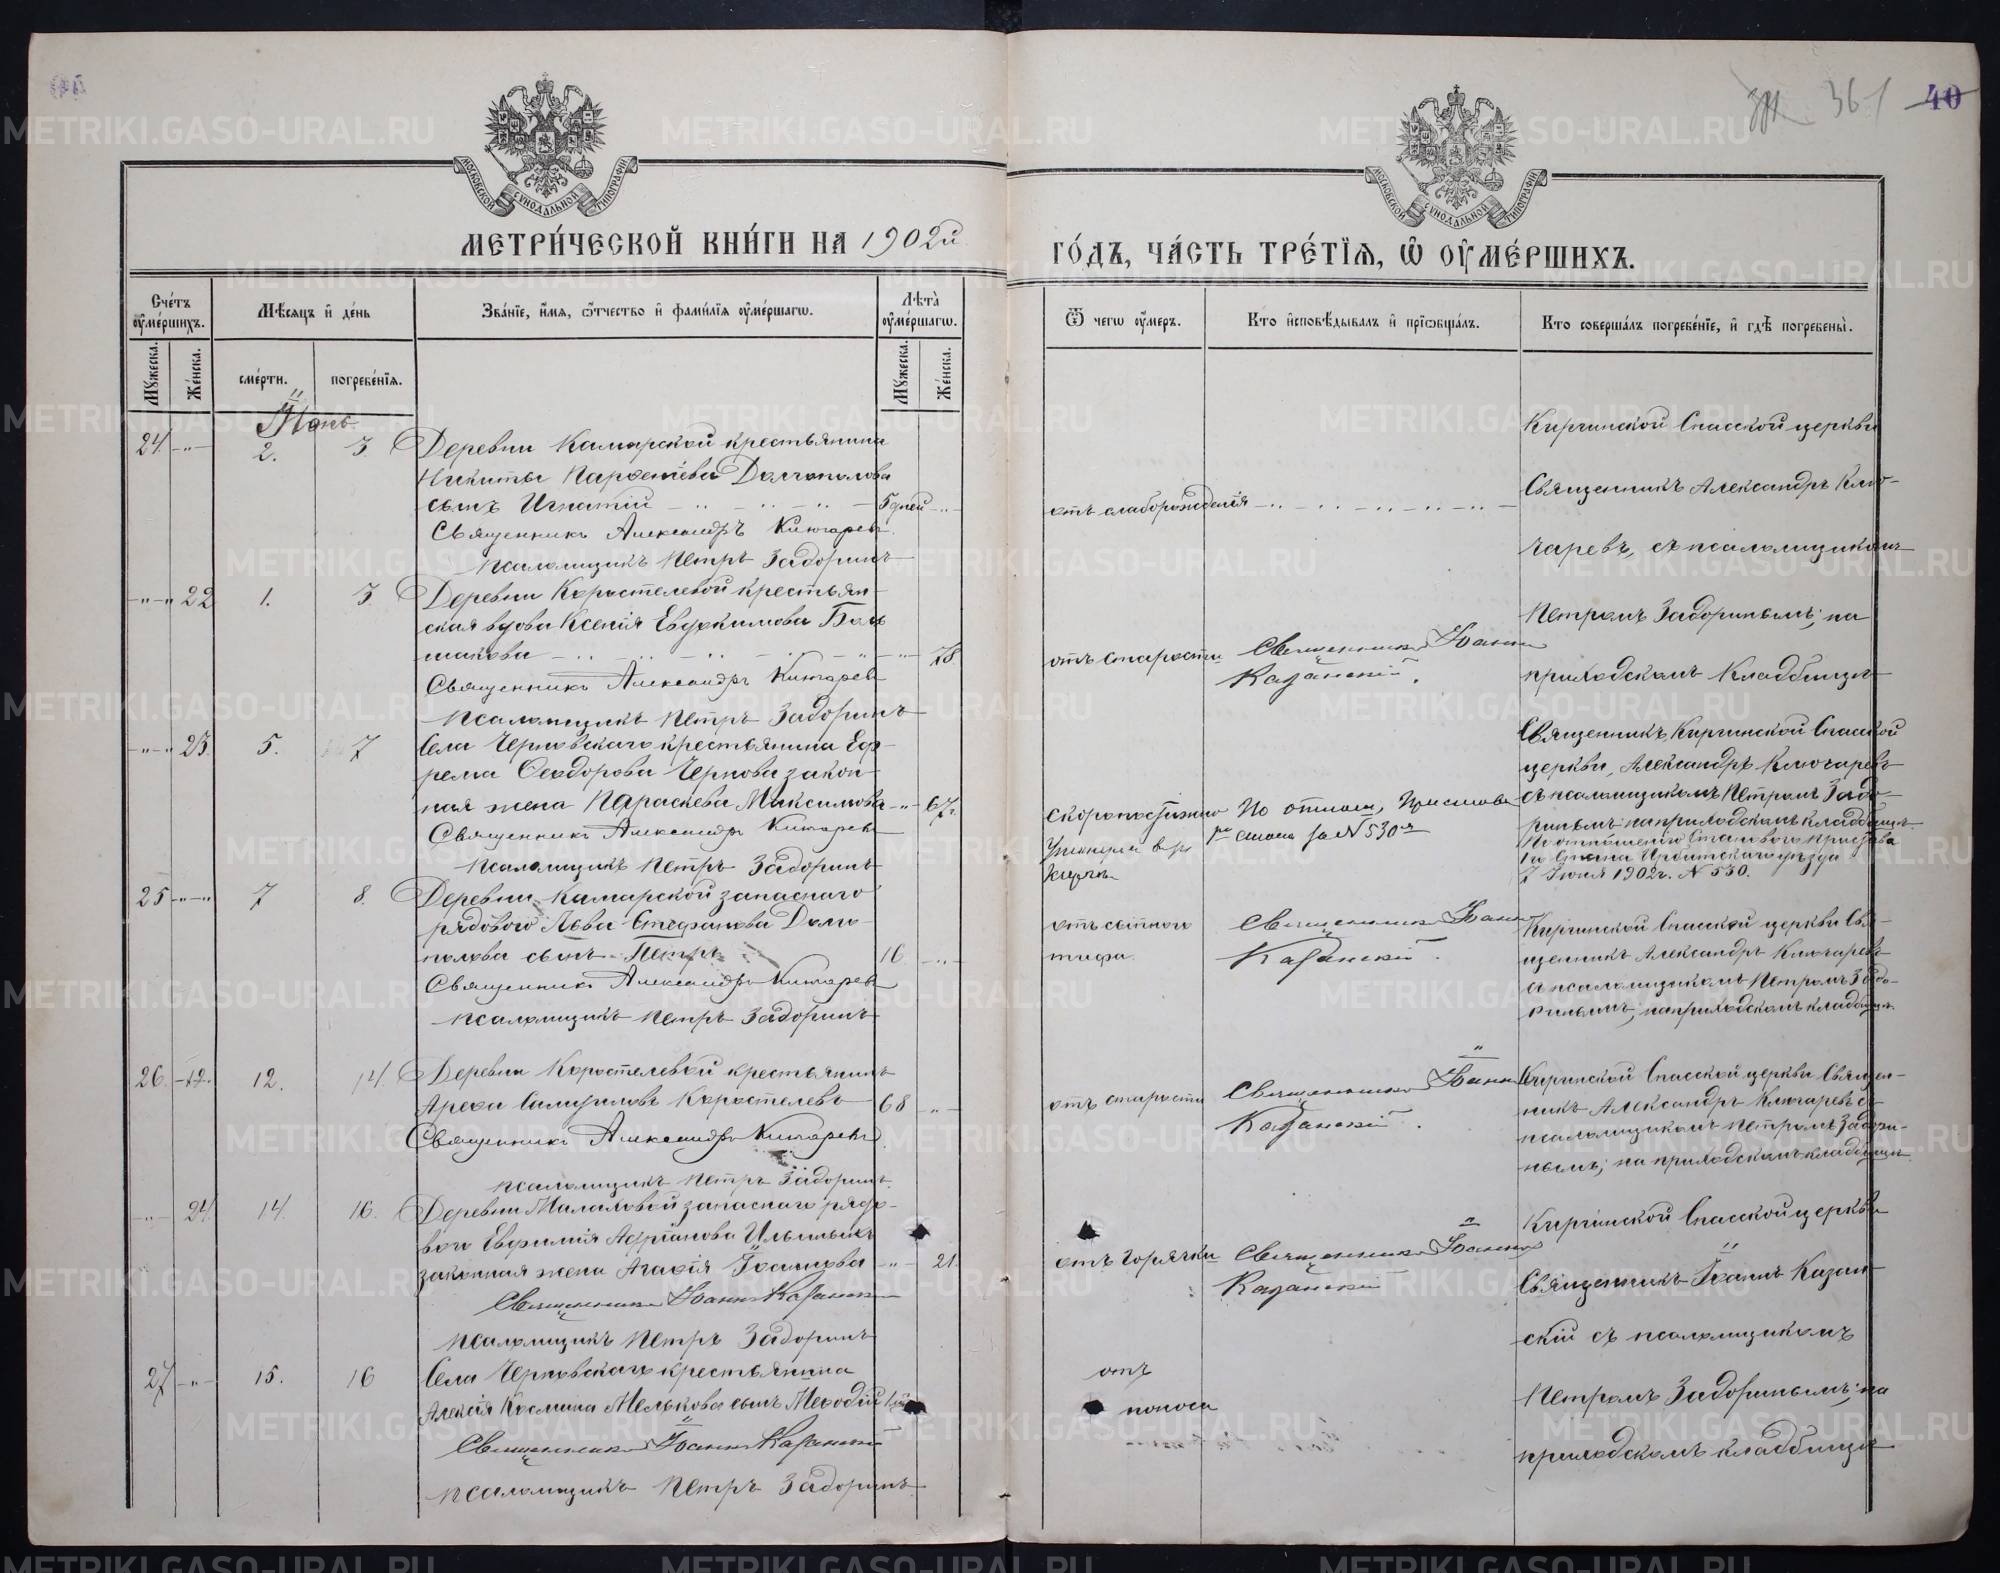 361 40
МОСКОВСКОЙ СѴНОДАЛЬНОЙ ТИПОГРАФІИ
МОСКОВСКОЙ СѴНОДАЛЬНОЙ ТИПОГРАФІИ
МЕТРИ́ЧЕСКОЙ КНИ́ГИ НА 1902й
ГО́ДЪ, ЧА́СТЬ ТРЕ́ТІѦ, Ѽ ОУ҆МЕ́РШИХЪ.
Сче́тъ оу҆ме́ршихъ.
Мꙋжеска.
Же́нска.
Мѣ́сѧцъ и҆ де́нь
сме́рти.
погребе́нїѧ.
Зва́нїе, и҆́мѧ, ѻ҆́тчество и҆ фамі́лїѧ оу҆ме́ршагѡ.
Лѣ́та оу҆ме́ршагѡ.
Мꙋжеска.
Же́нска.
Ѿ чегѡ̀ оу҆́меръ.
Кто̀ и҆сповѣ́дывалъ и҆ прїѡбща́лъ.
Кто̀ соверша́лъ погребе́нїе, и҆ гдѣ̀ погребены̀.
Іюнь
24. -"- 2. 3. Деревни Камарской крестьянина
Никиты Долгополова
сынъ Игнатій 5 дней -"-
Священникъ Александръ Ключаревъ
Псаломщикъ Петръ Задоринъ
отъ слаборожденія
Киргинской Спасской церкви
Священникъ Александръ Клю-
чаревъ, съ псаломщикомъ
Петромъ Задоринымъ; на
приходскомъ кладбищѣ
-"- 22 1. 3. Деревни Коростелевой крестьян-
ская вдова Ксенія Евдокимова Боль
шакова -"- 78
Священникъ Александръ Ключаревъ
Псаломщикъ Петръ Задоринъ
отъ старости
Священникъ Іоаннъ
Казанскій.
-"- 23. 5. 7 Села Черновскаго крестьянина Еф-
рема Ѳеодорова Чернова закон-
ная жена Параскева Максимова -"- 67.
Священникъ Александръ Ключаревъ
Псаломщикъ Петръ Задоринъ
скоропостижно
По отнош. Пристава
1го стана за № 530м
Священникъ Киргинской Спасской
церкви, Александръ Ключаревъ
съ псаломщикомъ Петромъ Задо-
ринымъ; на приходскомъ кладбищѣ.
По отношенію Становаго Пристава
1го Стана Ирбитскаго уѣзда
7 Іюня 1902г. № 530.
25 -"- 7 8. Деревни Камарской запаснаго
рядоваго Льва Стефанова Долго-
полова сынъ Петръ 16 -"-
Священникъ Александръ Ключаревъ
Псаломщикъ Петръ Задоринъ
отъ сыпного
тифа.
Священникъ Іоаннъ
Казанскій.
Киргинской Спасской церкви Свя-
щенникъ Александръ Ключаревъ
съ псаломщикомъ Петромъ Задо-
ринымъ; на приходскомъ кладбищѣ.
26. 12. 14. Деревни Коростелевой крестьянинъ
Самуиловъ Коростелевъ 68 -"-
Священникъ Александръ Ключаревъ.
Псаломщикъ Петръ Задоринъ.
отъ старости
Священникъ Іоаннъ
Казанскій.
Киргинской Спасской церкви Священ-
никъ Александръ Ключаревъ съ
псаломщикомъ Петромъ Задори-
нымъ; на приходскомъ кладбищѣ.
-"- 24. 14. 16. Деревни Малаховой запаснаго рядо-
ваго Евфимія Адріанова Ильиныхъ
законная жена Агафія Іоаннова -"- 21.
Священникъ Іоаннъ Казанскій
Псаломщикъ Петръ Задоринъ
отъ горячки
Священникъ Іоаннъ
Казанскій
Киргинской Спасской церкви
Священникъ Іоаннъ Казан-
скій съ псаломщикомъ
Петромъ Задоринымъ; на
приходскомъ кладбищѣ
27 -"- 15. 16 Села Черновскаго крестьянина
Алексія Космина Мелькова сынъ Меѳодій
Священникъ Іоаннъ Казанскій
Псаломщикъ Петръ Задоринъ
отъ
поноса